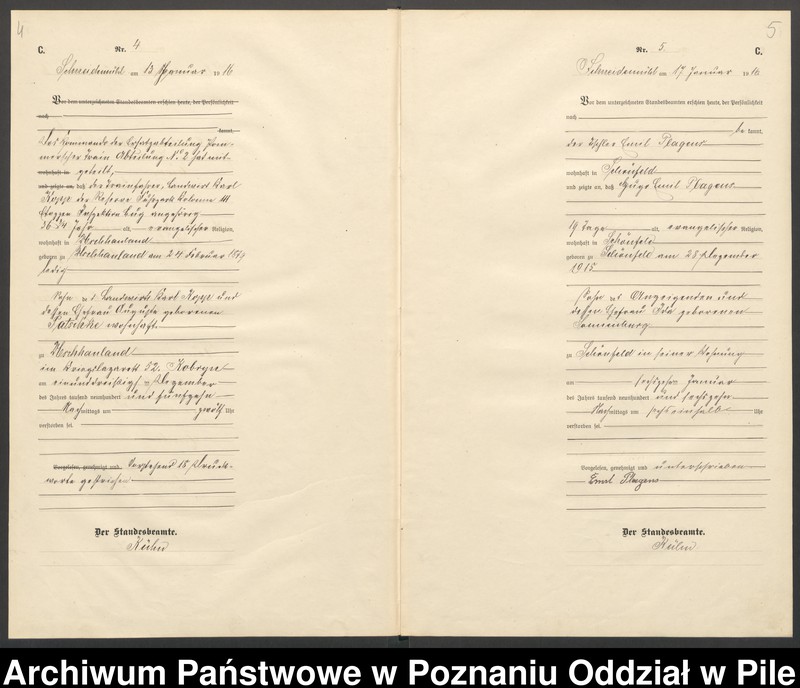 4
C.
Nr. 4
Schneidemühl am 13 Januar 1916
Vor dem unterzeichneten Standesbeamten erschien heute, der Persönlichkeit
nach
kannt,
Das Kommando der Ersatzabteilung Pom-
merscher Train Abteilung No 2 hat mit-
wohnhaft in geteilt,
und zeigte an, daß der Trainfahrer, Landwirt Karl
der Reserve Fuhrpark Kolonne III
Etappen Inspektion Bug angehörig
36 3/4 Jahr alt, evangelischer Religion,
wohnhaft in
geboren zu am 24 Februar 1879
ledig
Sohn des Landwirts Karl und
dessen Ehefrau Auguste geborenen
wohnhaft
zu
im Kriegslazarett 52. Kobryn
am einunddreißigsten Dezember
des Jahres tausend neunhundert und fünfzehn
Nachmittags um zwölf Uhr
verstorben sei.
Vorgelesen, genehmigt und Vorstehend 18 Druck-
worte gestrichen
Der Standesbeamte.
Kühn
5
Nr. 5.
C.
Schneidemühl am 17 Januar 1916
Vor dem unterzeichneten Standesbeamten erschien heute, der Persönlichkeit
nach
be kannt,
der Tischler Emil Plagens
wohnhaft in Schönfeld
und zeigte an, daß Hugo Emil Plagens
19 Tage alt, evangelischer Religion,
wohnhaft in Schönfeld
geboren zu Schönfeld am 28 Dezember
1915
Sohn des Anzeigenden und
dessen Ehefrau Ida geborenen
Sonnenburg
zu Schönfeld in seiner Wohnung
am sechzehn Januar
des Jahres tausend neunhundert und sechzehn
Nachmittags um sechseinhalb Uhr
verstorben sei.
Vorgelesen, genehmigt und unterschrieben
Emil Plagens
Der Standesbeamte.
Kühn
Archiwum Państwowe w Poznaniu Oddział w Pile